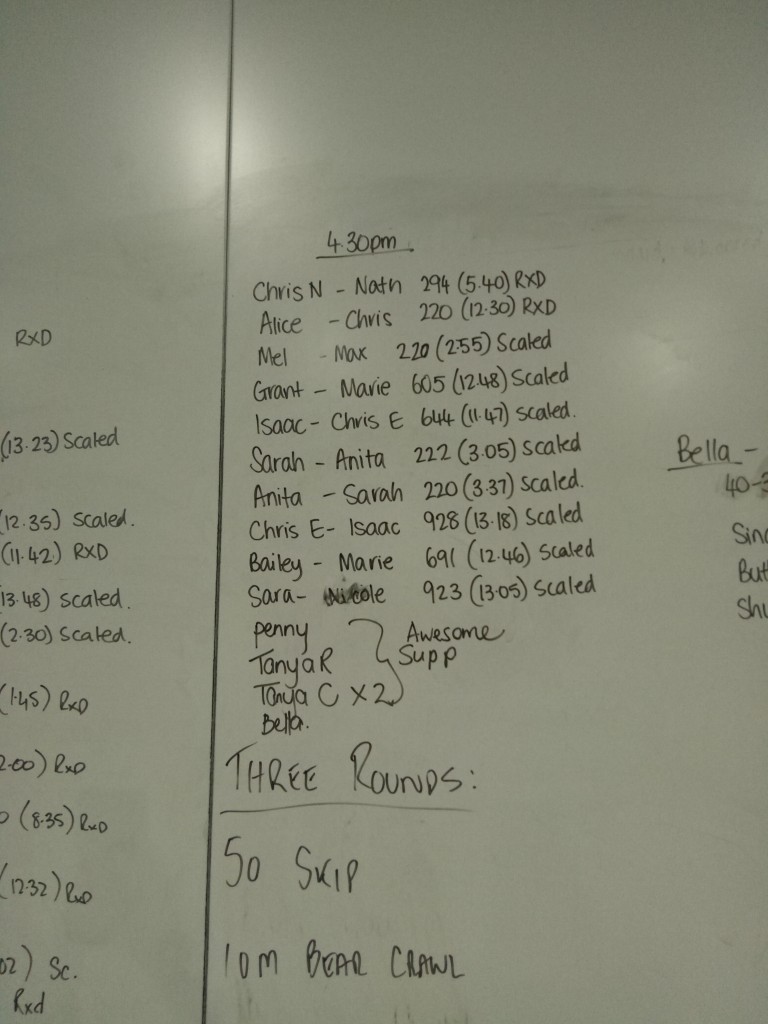 RXD
(13.23) Scaled
(12.35) Scaled.
(11.42) RXD
13.48) Scaled.
(2.30) Scaled.
(1.45) RxD
2.00) RxD
(8.35) RxD
(12.32) RxD
02) Sc.
Rxd
4.30pm
Chris N - Nath 294 (5.40) RXD
Alice - Chris 220 (12.30) RXD
Mel - Max 220 (2.55) Scaled
Grant - Marie 605 (12.48) Scaled
Isaac - Chris E 644 (11.47) Scaled.
Sarah - Anita 222 (3.05) Scaled
Anita - Sarah 220 (3.37) Scaled.
Chris E - Isaac 928 (13.18) Scaled
Bailey - Marie 691 (12.46) Scaled
Sara - Nicole 923 (13.05) Scaled
Penny } Awesome
Tanya R Supp
Tanya C x2
Bella.
THREE ROUNDS:
50 SKIP
10M BEAR CRAWL
Bella -
40-3